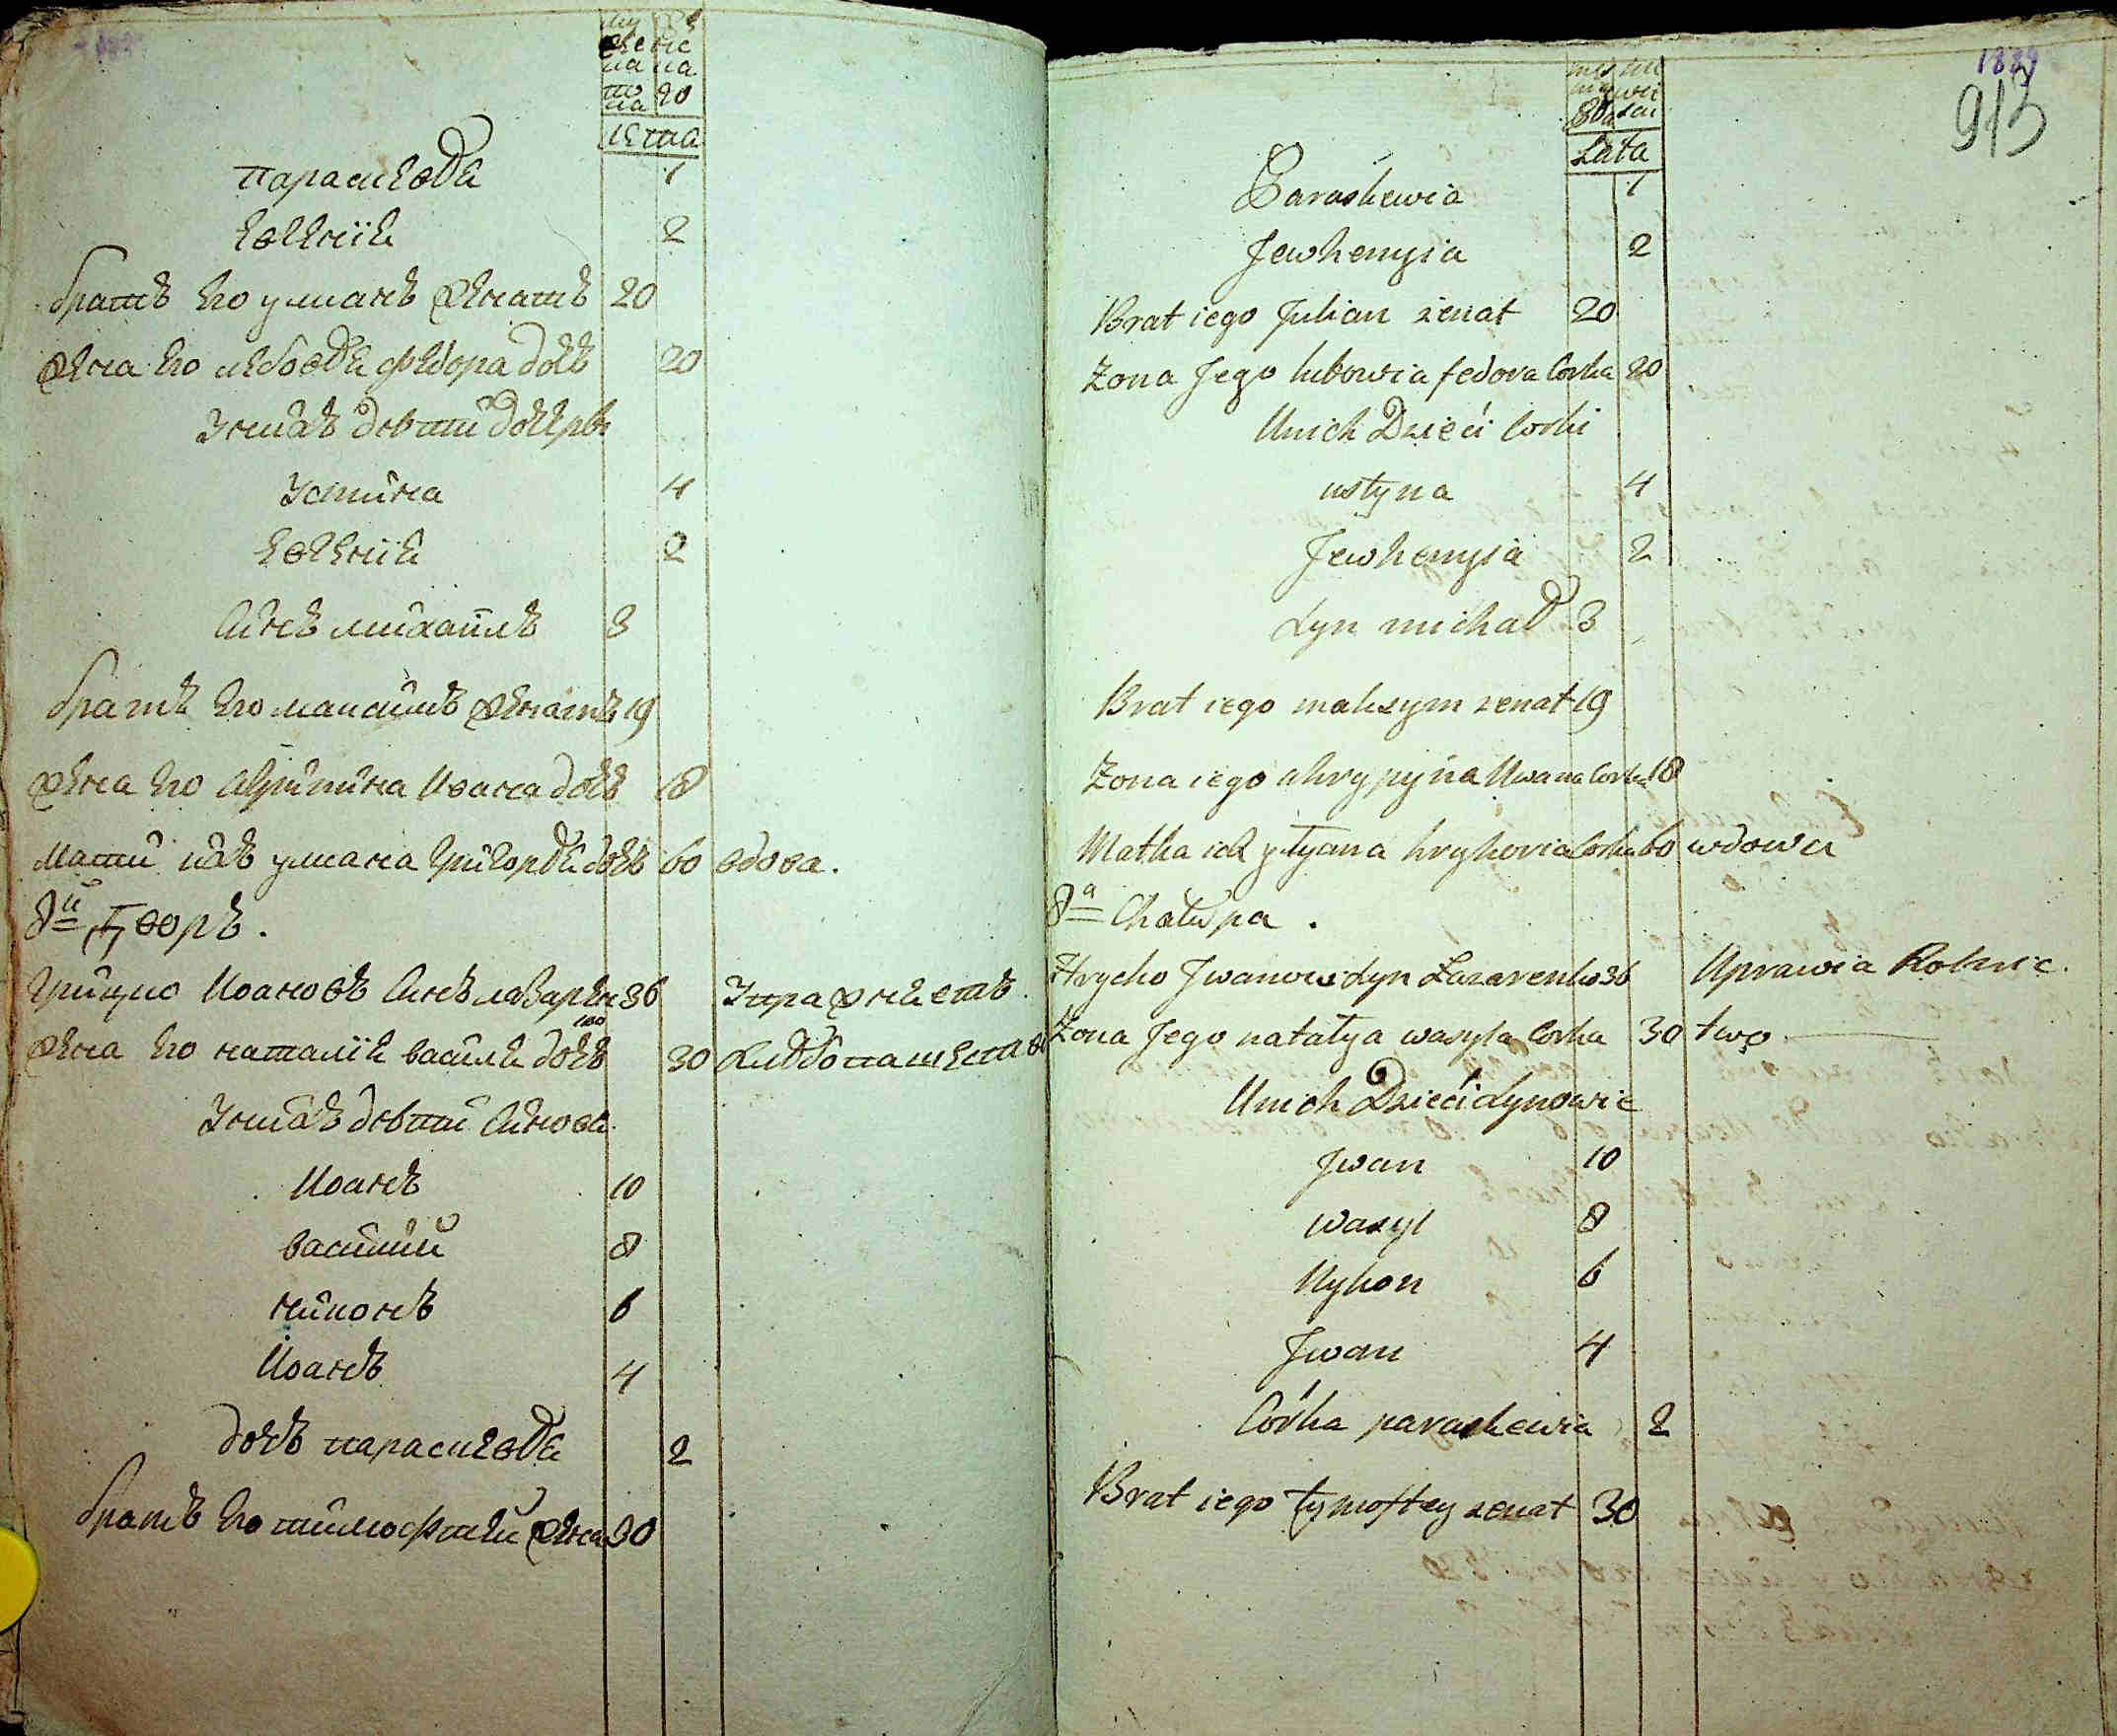 же же
на на
20
лѣта
параскевѣя 1
Евгенія 2
братъ его улианъ женатъ 20
жена его любовѣя федора дочь 20
Унихъ дѣти дочеры
Устина 4
Евгенія 2
Синъ михаилъ 3
братъ его максимъ женатъ 19
жена его Агрипина Иоана дочь 18
Мати ихъ улиана Григорѣя дочь 60 вдова.
8й Дворъ.
Грицко Иоановъ Синъ лазаренко 36 Упражняетъ
жена его наталія василя дочь 30 хлѣбопашество
Унихъ дѣти Синови
Иоанъ 10
василий 8
никонъ 6
Иоанъ 4
дочь параскевѣя 2
братъ его тимофтей жена 30
1889
913
Lata
Paraskewia 1
Jewhenyia 2
Brat iego Julian zenat 20
Zona Jego lubowia fedora Corka 20
Unich Dzieci Corki
ustyna 4
Jewhenyia 2
Syn michał 3
Brat iego maksym zenat 19
Zona iego ahrypyna Uwana Corka 18
Matka ich hryhoria Corka 60 wdowa
8a Chałupa.
Hrycko Jwanow Syn Lazarenko 36 Uprawia Rolnic.
Zona Jego natalya wasyla Corka 30 two
Unich Dzieci Synowie
Jwan 10
wasyl 8
Nykon 6
Jwan 4
Córka paraskewia 2
Brat iego tymoftey zenat 30